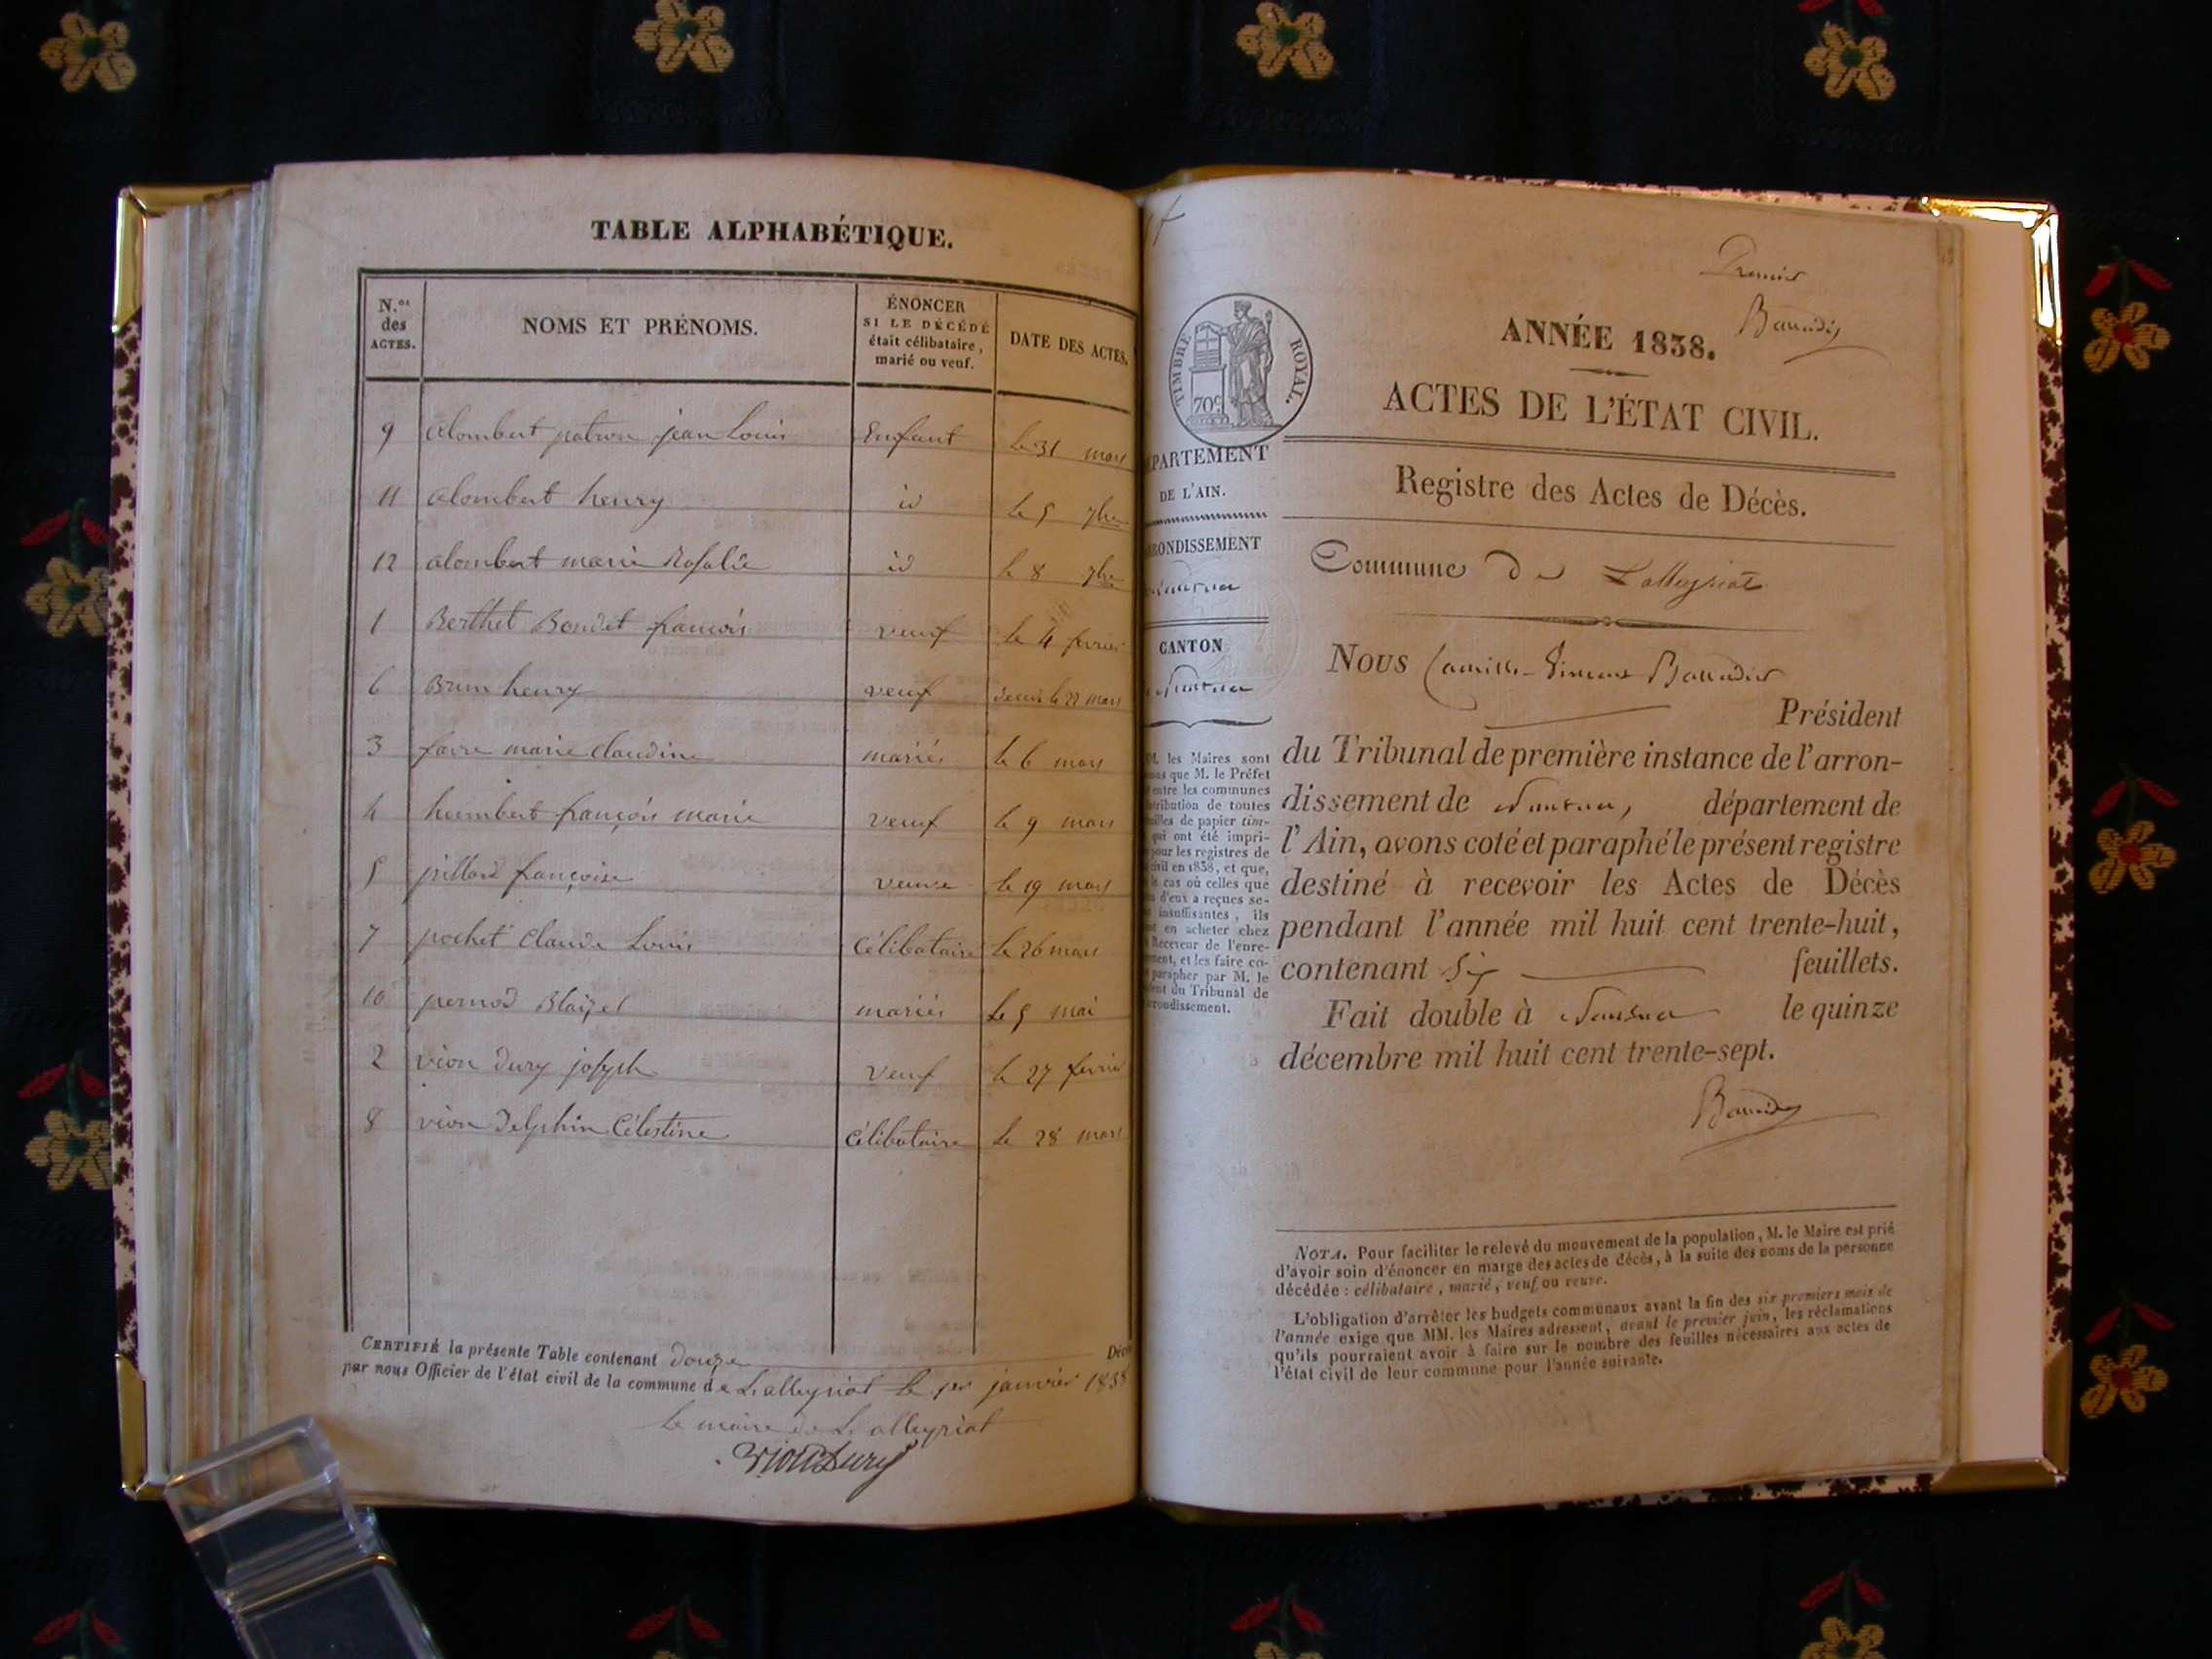 TABLE ALPHABÉTIQUE.
N.os des ACTES.
NOMS ET PRÉNOMS.
ÉNONCER
SI LE DÉCÉDÉ
était célibataire,
marié ou veuf.
DATE DES ACTES.
9 alombert patron jean Louis Enfant le 31 mars
11 alombert henry id le 5 7bre
12 alombert marie Rosalie id le 8 7bre
1 Berthet Bondet francois veuf le 4 fevrier
6 Brun henry veuf le 22 mars
3 favre marie claudine mariée le 6 mars
4 humbert françois marie veuf le 9 mars
5 jullard françoise veuve le 19 mars
7 pochet Claude Louis Célibataire le 26 mars
10 pernod Blaize mariée le 5 mai
2 vion dury joseph veuf le 27 fevrier
8 vion Delphin Célestine célibataire le 28 mars
CERTIFIÉ la présente Table contenant douze Décè
par nous Officier de l'état civil de la commune de Lalleyriat le 1er janvier 1838
le maire de Lalleyriat
VionDury
Premier
Baudin
TIMBRE ROYAL.
70c
ANNÉE 1838.
ACTES DE L'ÉTAT CIVIL.
Registre des Actes de Décès.
Commune de Lalleyriat
PARTEMENT
DE L'AIN.
RONDISSEMENT
Nantua
CANTON
Nantua
M. les Maires sont
que M. le Préfet
entre les communes
tribution de toutes
feuilles de papier tim-
qui ont été impri-
pour les registres de
civil en 1838, et que,
le cas où celles que
d'eux a reçues se-
insuffisantes, ils
en acheter chez
Receveur de l'enre-
ment, et les faire co-
parapher par M. le
du Tribunal de
rondissement.
Nous Camille-Vincent
Président
du Tribunal de première instance de l'arron-
dissement de Nantua, département de
l'Ain, avons coté et paraphé le présent registre
destiné à recevoir les Actes de Décès
pendant l'année mil huit cent trente-huit,
contenant six feuillets.
Fait double à Nantua le quinze
décembre mil huit cent trente-sept.
NOTA. Pour faciliter le relevé du mouvement de la population, M. le Maire est prié
d'avoir soin d'énoncer en marge des actes de décès, à la suite des noms de la personne
décédée : célibataire, marié, veuf ou veuve.
L'obligation d'arrêter les budgets communaux avant la fin des six premiers mois de
l'année exige que MM. les Maires adressent, avant le premier juin, les réclamations
qu'ils pourraient avoir à faire sur le nombre des feuilles nécessaires aux actes de
l'état civil de leur commune pour l'année suivante.